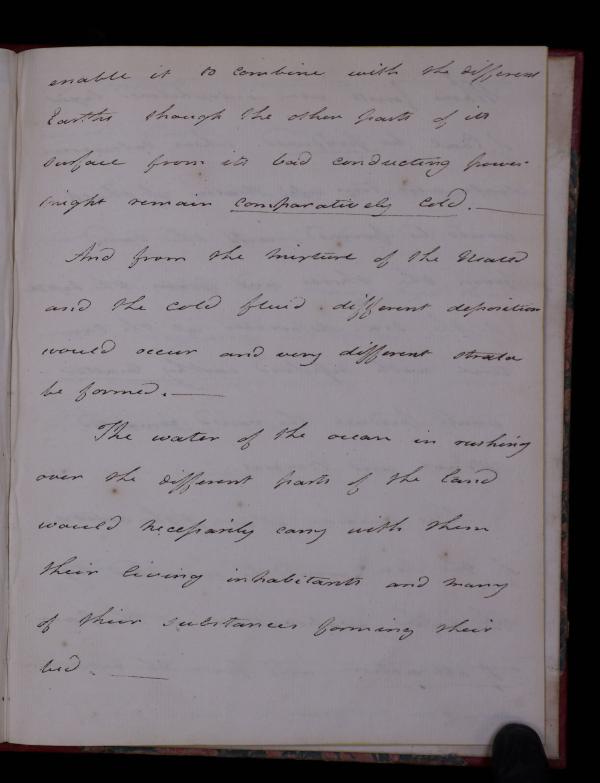 enable it to combine with the different
Earths though the other parts of its
surface from its bad conducting power
might remain comparatively cold. —
And from the mixture of the Heated
and the cold fluid different deposition
would occur and very different strata
be formed. —
The water of the ocean in rushing
over the different parts of the land
would necessarily carry with them
their living inhabitants and many
of their substances forming their
bed. —